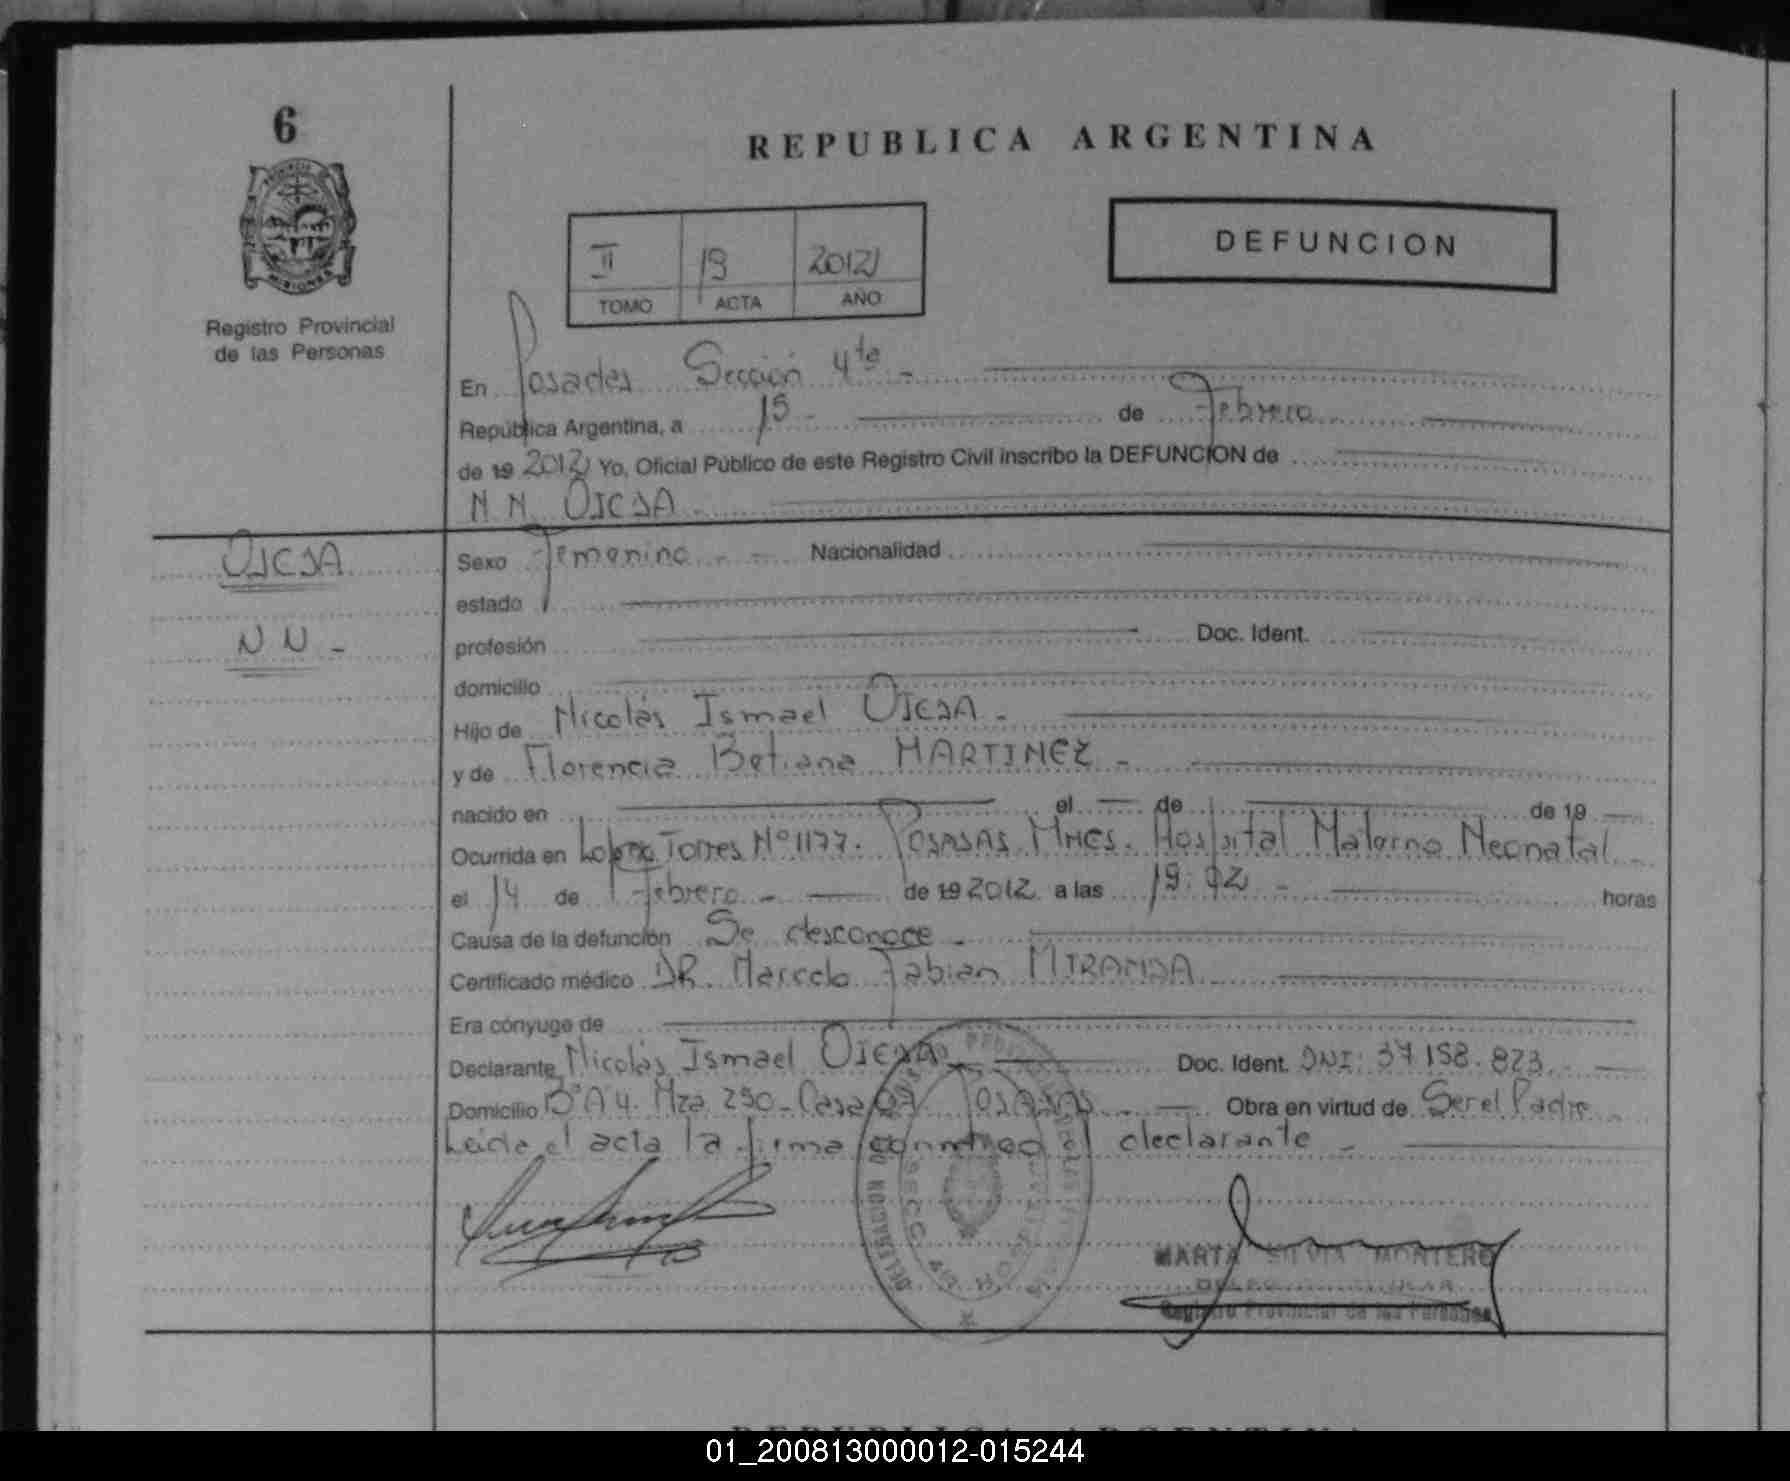 6
REPUBLICA ARGENTINA
II 19 2012
TOMO ACTA AÑO
DEFUNCION
Registro Provincial
de las Personas
En Posadas Sección 4ta -
República Argentina, a 15 - de Febrero
de 19 2012 Yo, Oficial Público de este Registro Civil inscribo la DEFUNCION de
N N OJEDA
OJEDA
N N -
Sexo Femenino - Nacionalidad
estado
profesión Doc. Ident.
domicilio
Hijo de Nicolás Ismael OJEDA -
y de Florencia Betiana MARTINEZ -
nacido en el de de 19
Ocurrida en Torres Nº 1177. POSADAS MNES. Hospital Materno Neonatal
el 14 de Febrero - de 19 2012 a las 19:02 - horas
Causa de la defunción Se desconoce -
Certificado médico DR. Marcelo Fabian MIRANDA
Era cónyuge de
Declarante Nicolás Ismael OJEDA Doc. Ident. DNI: 37.158.823
Domicilio Bº A4. Mza 250 - Casa POSADAS - Obra en virtud de Ser el Padre
Leida el acta la firma conmigo el declarante -
DELEGACION
MARTA SILVIA MONTERO
Registro Provincial de las Personas
REPUBLICA ARGENTINA
01_200813000012-015244